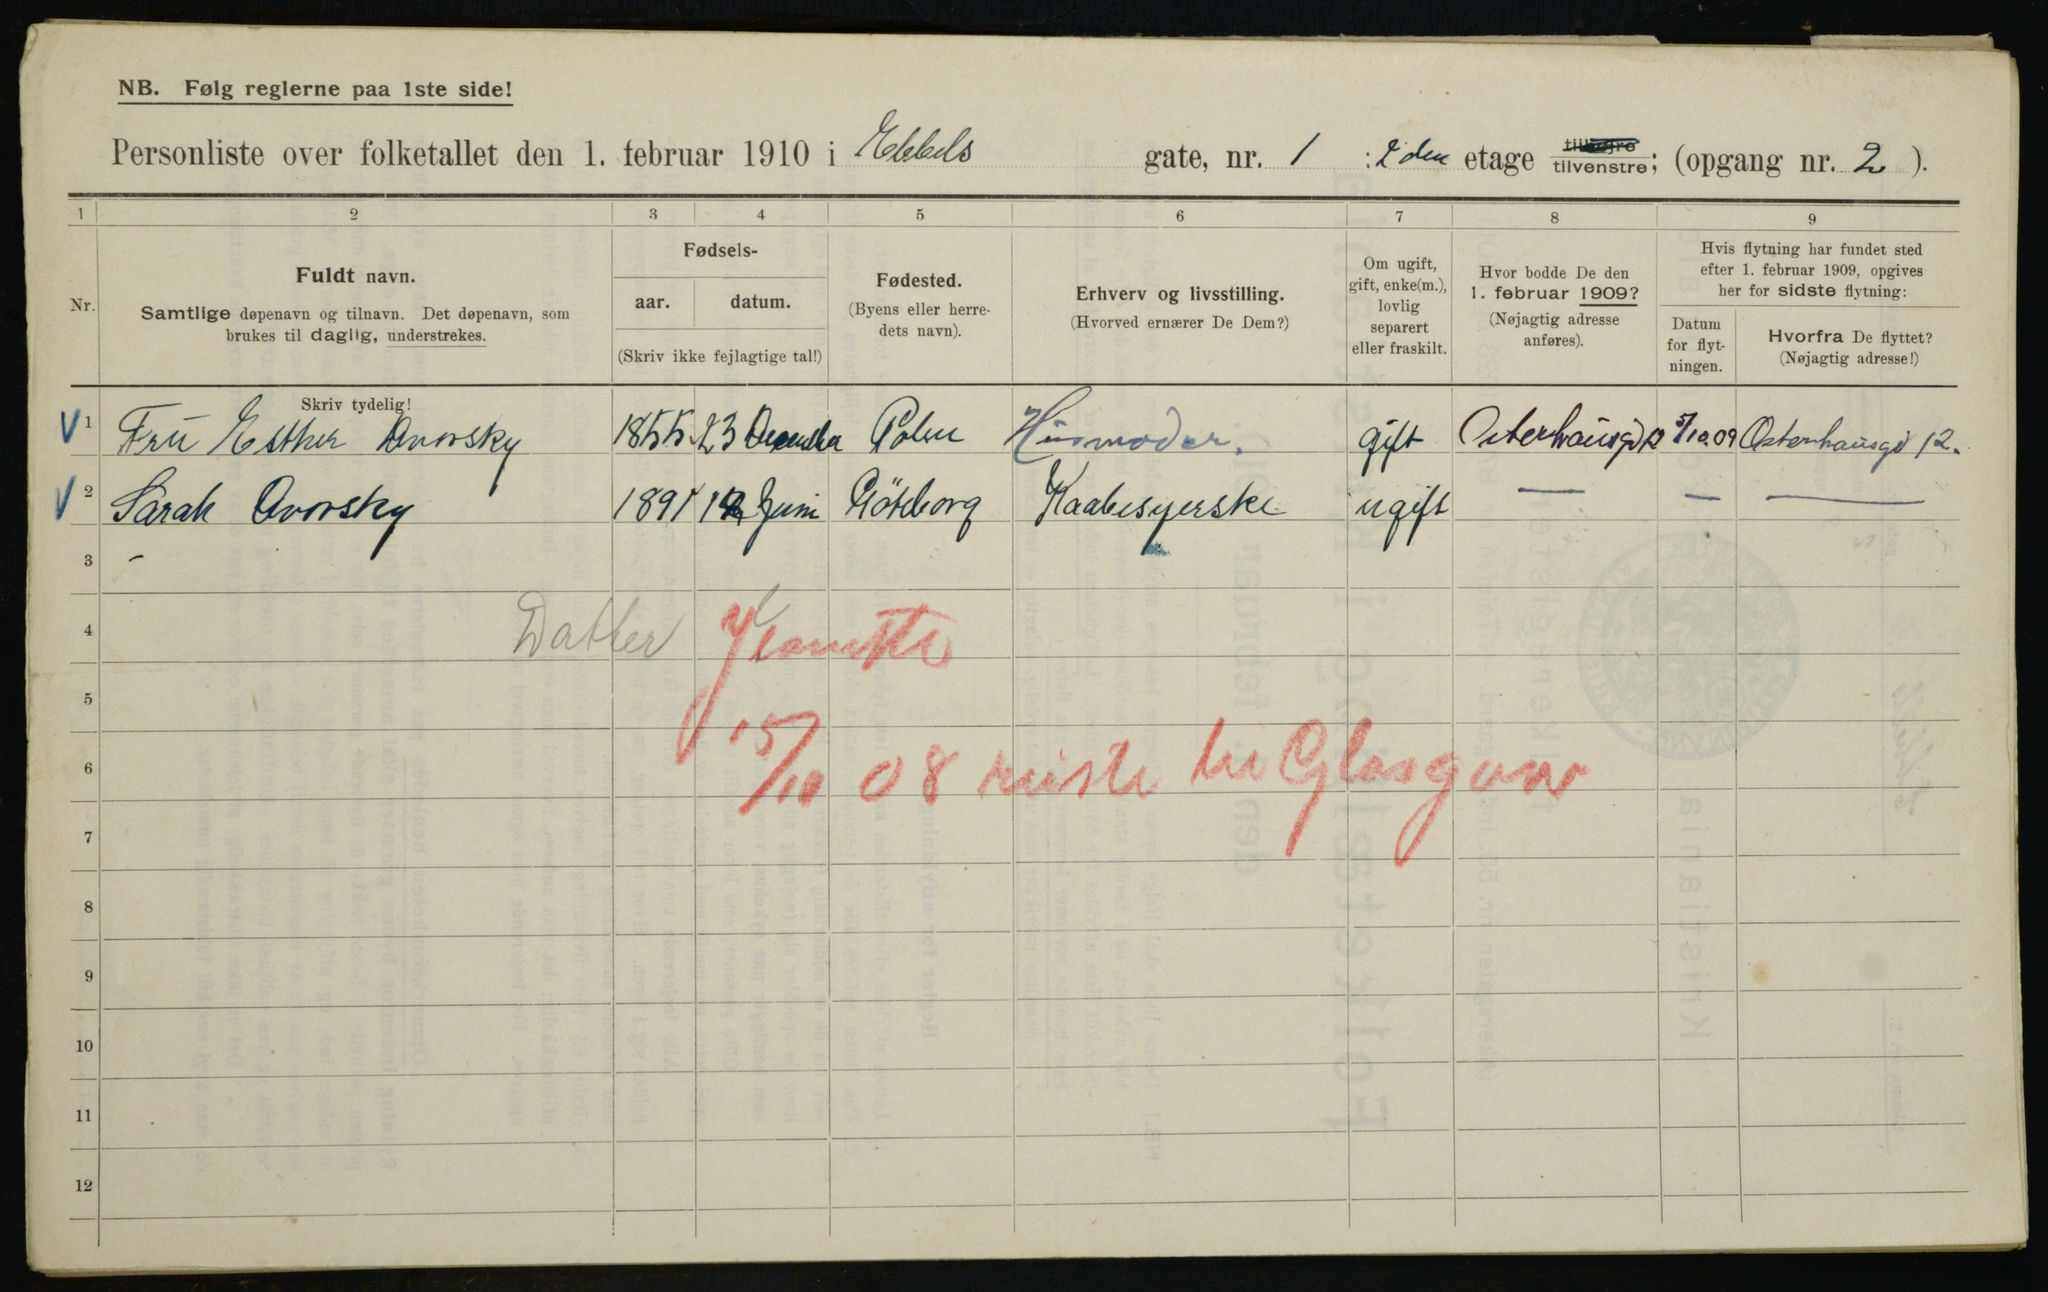 NB. Følg reglerne paa 1ste side!
Personliste over folketallet den 1. februar 1910 i Ebbels gate, nr. 1 : 2den etage tilhøjre tilvenstre; (opgang nr. 2 ).
1 2 3 4 5 6 7 8 9
Nr.
Fuldt navn.
Samtlige døpenavn og tilnavn. Det døpenavn, som
brukes til daglig, understrekes.
Fødsels-
aar. datum.
(Skriv ikke fejlagtige tal!)
Fødested.
(Byens eller herre-
dets navn).
Erhverv og livsstilling.
(Hvorved ernærer De Dem?)
Om ugift,
gift, enke(m.),
lovlig
separert
eller fraskilt.
Hvor bodde De den
1. februar 1909?
(Nøjagtig adresse
anføres).
Hvis flytning har fundet sted
efter 1. februar 1909, opgives
her for sidste flytning:
Datum
for flyt-
ningen.
Hvorfra De flyttet?
(Nøjagtig adresse!)
Skriv tydelig!
V 1 Fru Esther Dvorsky 1855 23 December Polen Husmoder. gift Osterhausgd 12 5/10.09 Osterhausgd 12.
V 2 Sarah Dvorsky 1891 Juni Göteborg Kaabesyerske ugift — — —
3 -
4 Datter Jeanette
5
6 15/10 08 reiste til Glasgow
7
8
9
10
11
12